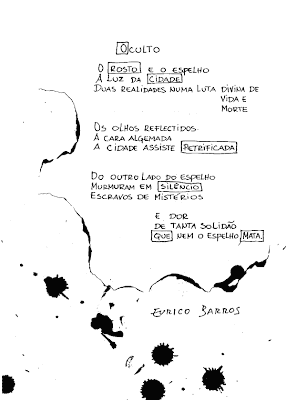 OCULTO
O ROSTO E O ESPELHO
À LUZ DA CIDADE
DUAS REALIDADES NUMA LUTA DIVINA DE
VIDA E
MORTE
OS OLHOS REFLECTIDOS
A CARA ALGEMADA
A CIDADE ASSISTE PETRIFICADA
DO OUTRO LADO DO ESPELHO
MURMURAM EM SILÊNCIO
ESCRAVOS DE MISTÉRIOS
E DOR
DE TANTA SOLIDÃO
QUE NEM O ESPELHO MATA.
EURICO BARROS